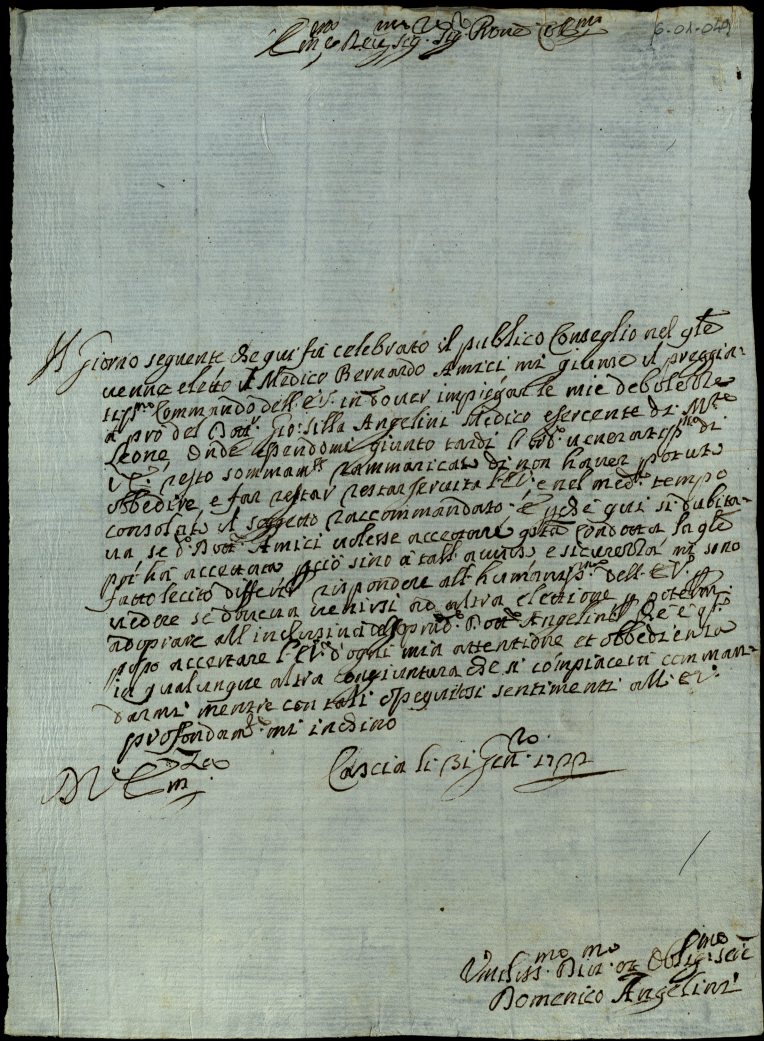 Em.mo e Rev.mo Sig.r Sig.r Pro.ne Col.mo
6-01-049
Il Giorno seguente che qui fu celebrato il publico Conseglio nel q.le
venne eletto il Medico Bernardo Amici mi giunse il preggia-
tiss.mo Commando dell' E.V. in dover impiegar le mie debolezze
a prò del Dott. Gio: Silla Angelini Medico esercente di M.te
Leone, onde essendomi giunto tardi l'ord.e veneratiss.mo di
V.E. resto sommam.te rammaricato di non haver potuto
obbedire e far restar restar servita l'E.V. e nel med.o tempo
consolato il soggetto raccommandato. E perche qui si dubita-
va se d.o Dott. Amici volesse accettare q.sta Condotta la q.le
poi ha accettata perciò sino à tall' aviso e sicurezza mi sono
fatto lecito differir rispondere all' humaniss.mo dell' E.V. p
vedere se doveva venirsi ad altra elettione p potessi
adoprare all' inclusiva del pred.o Dott. Angelini che è q.to
posso accertare l'E.V. d'ogni mia attentione et obbedienza
in qualunque altra congiuntura che si compiacerà comman-
darmi mentre con tali ossequiosi sentimenti all' E.V.
profondam.te mi inchino
D. V. Em.za
Cascia li 31 Gen.ro 1722
Umiliss.mo Div.mo et Oblig.mo Ser.e
Domenico Angelini